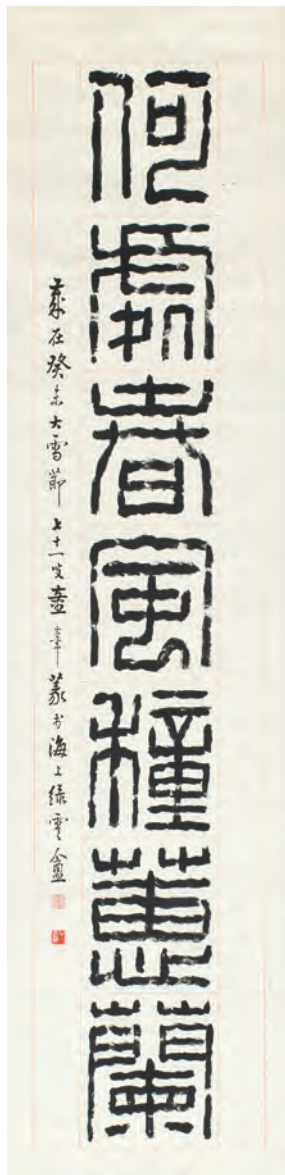 何處春風種蕙蘭
歲在癸未大雪節七十一叟壺辛篆書海上緑雲盦